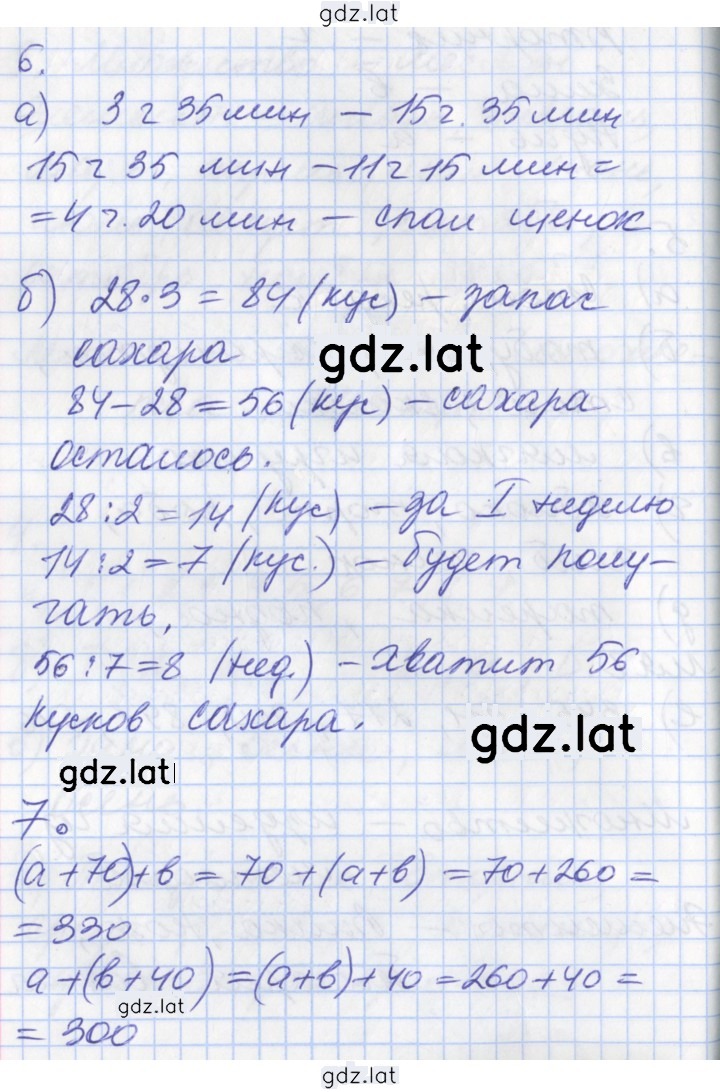 gdz.lat
6.
а) 3 ч 35 мин – 15 ч. 35 мин
15 ч 35 мин – 11 ч 15 мин =
= 4 ч. 20 мин – спал щенок
б) 28·3 = 84 (кус) – запас
сахара
gdz.lat
84–28 = 56 (кус) – сахара
осталось.
28:2 = 14 (кус) – за I неделю
14:2 = 7 (кус.) – будет полу-
чать,
56:7 = 8 (нед.) – хватит 56
кусков сахара.
gdz.lat
gdz.lat
7.
(а+70)+в = 70+(а+в) = 70+260 =
= 330
а+(в+40) = (а+в)+40 = 260+40 =
gdz.lat
= 300
gdz.lat